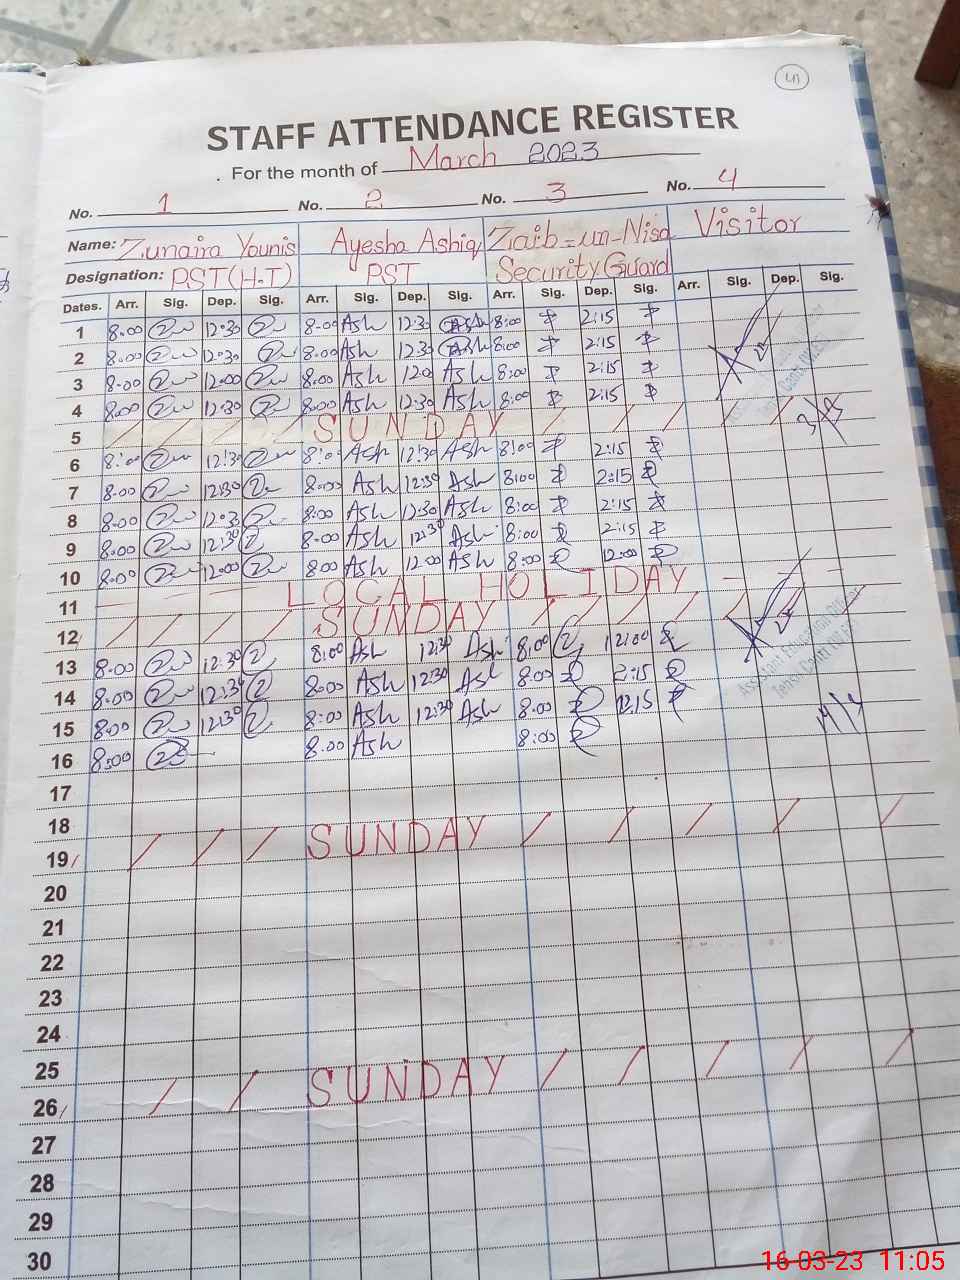 STAFF ATTENDANCE REGISTER
For the month of March 2023
No. 1 No. 2 No. 3 No. 4
Name: Zunaira Younis Ayesha Ashiq Zaib-un-Nisa Visitor
Designation: PST(H.T) PST Security Guard
Dates. Arr. Sig. Dep. Sig. Arr. Sig. Dep. Sig. Arr. Sig. Dep. Sig. Arr. Sig. Dep. Sig.
1 8.00 12:30 8:00 Ash 12:30 Ash 8:00 2:15
2 8.00 12:30 8.00 Ash 12:30 Ash 8:00 2:15
3 8.00 12:00 8:00 Ash Ash 8:00 2:15
4 8:00 12:30 8:00 Ash 12:30 Ash 8:00 2:15
5 SUNDAY
6 8:00 12:30 8:00 Ash 12:30 Ash 8:00 2:15
7 8.00 12:30 8:00 Ash 12:30 Ash 8:00 2:15
8 8.00 8:00 Ash 12:30 Ash 8:00 2:15
9 8:00 12:30 8:00 Ash 12:30 Ash 8:00 2:15
10 8:00 12:00 8:00 Ash 12:00 Ash 8:00 12:00
11 LOCAL HOLIDAY
12 SUNDAY
13 8:00 12:30 8:00 Ash 12:30 Ash 8:00 12:00
14 8:00 12:30 8:00 Ash 12:30 Ash 8:00 2:15
15 8:00 12:30 8:00 Ash 12:30 Ash 8.00
16 8:00 8.00 Ash 8:00
17
18
19 SUNDAY
20
21
22
23
24
25
26 SUNDAY
27
28
29
30
Assistant Education Officer
14/3
16-03-23 11:05